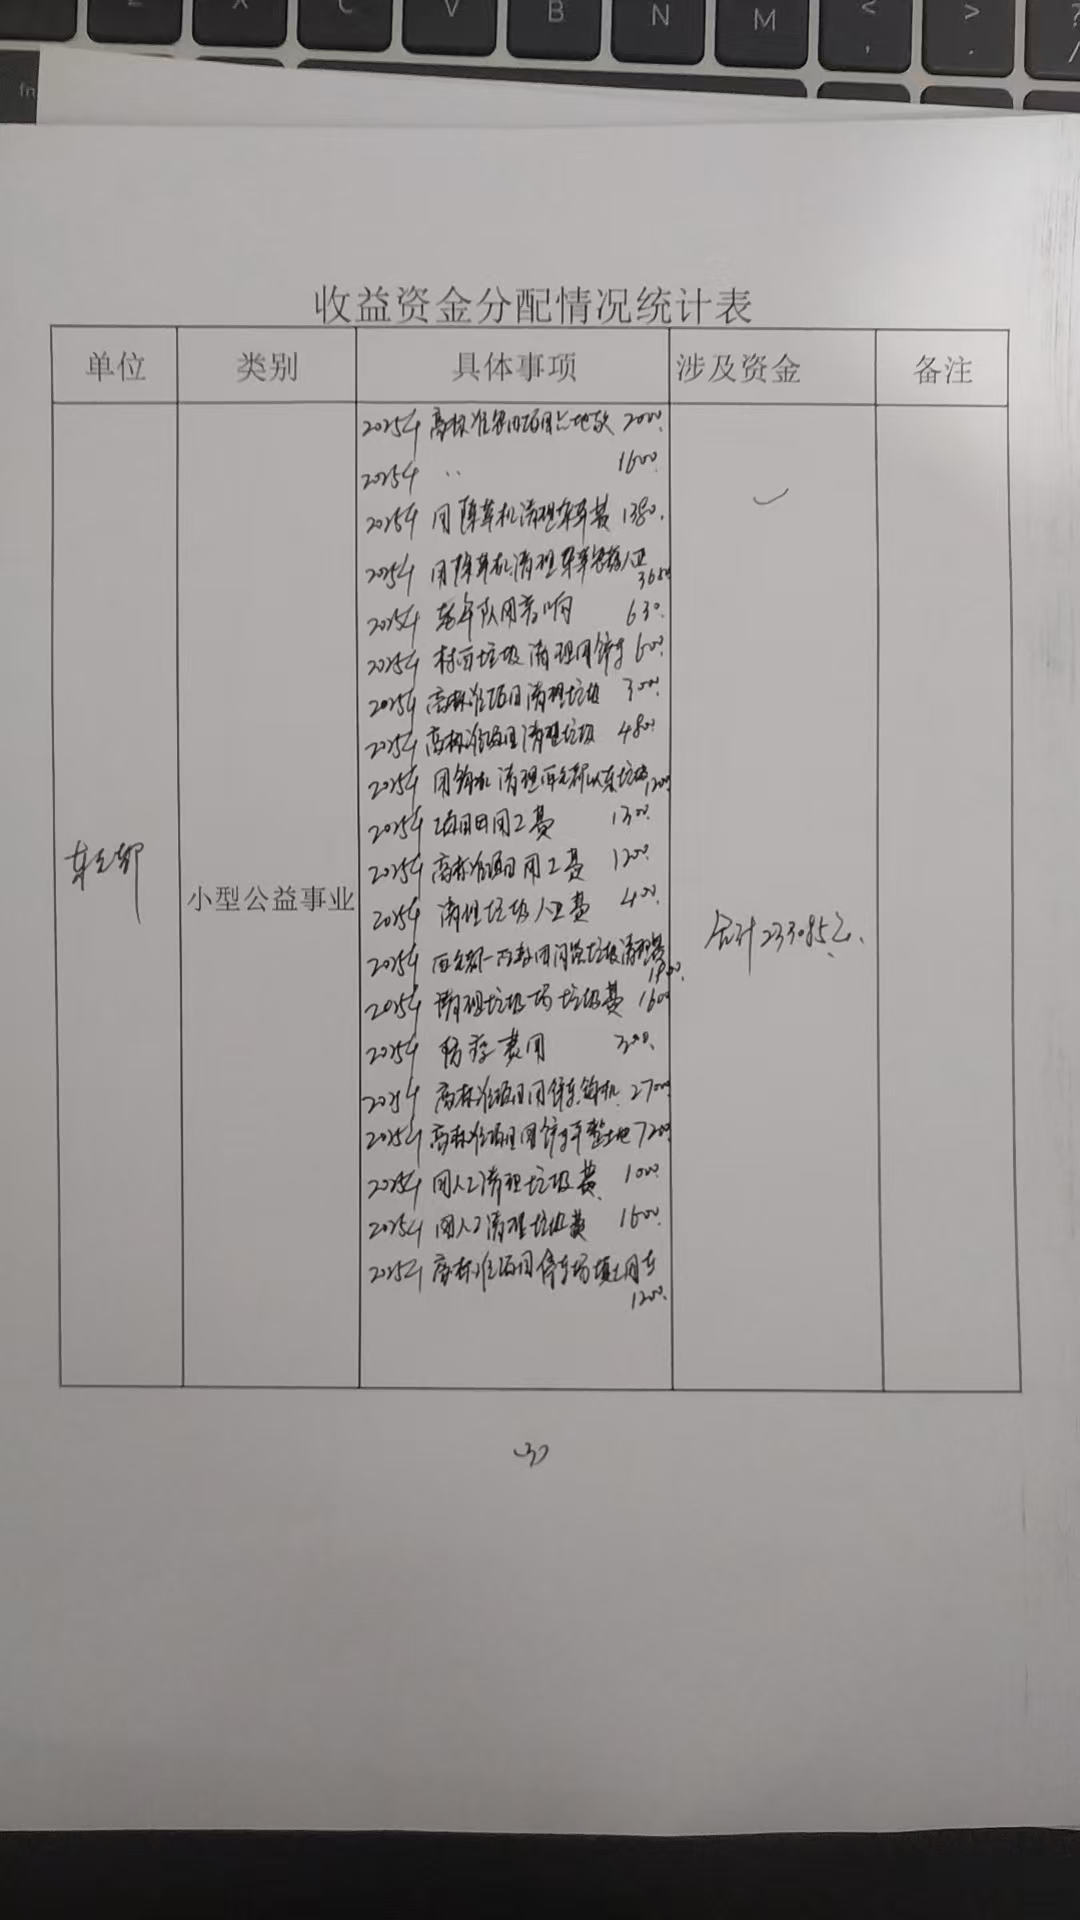 Z X C V B N M < ,  > .  ? /
fn
收益资金分配情况统计表
单位 类别 具体事项 涉及资金 备注
2025年 高标准农田项目占地款 2000.
2025年 〃 1600.
2025年 用除草机清理杂草费 1380.
2025年 用除草机清理杂草 人工
2025年 老年队用音响 630.
2025年 村西垃圾清理用铲车 600.
2025年 高标准项目清理垃圾 300.
2025年 高标准项目清理垃圾 480.
2025年 用钩机清理 以东垃圾 1200
2025年 项目田用工费 1300.
2025年 高标准项目用工费 1200.
2025年 清理垃圾人工费 400.
2025年 垃圾清理费
2025年 清理垃圾场垃圾费 1600
2025年 防疫费用 300.
2025年 高标准项目用铲车.钩机. 2700
2025年 高标准项目用铲车平整土地 7200
2025年 用人工清理垃圾费. 1000.
2025年 用人工清理垃圾费 1600.
2025年 高标准项目停车场填土用车
1200.
小型公益事业
合计233085元.
(3)